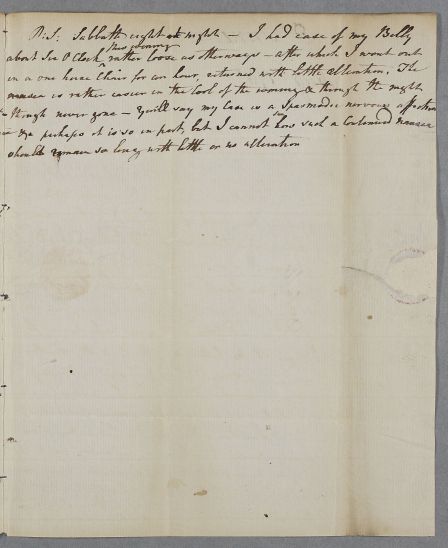 P.S. Sabbath eight at night — I had ease of my Belly
about Six O Clock this evening rather loose as otherways — after which I went out
in a one horse Chair for an hour, returned with little alteration. The
nausea is rather easier in the Cool of the evening & through the night
though never gone — will say my Case is a Spasmodic nervous affection
perhaps it is so in part, but I cannot see how such a Continued nausea
should remain so long with little or no alteration